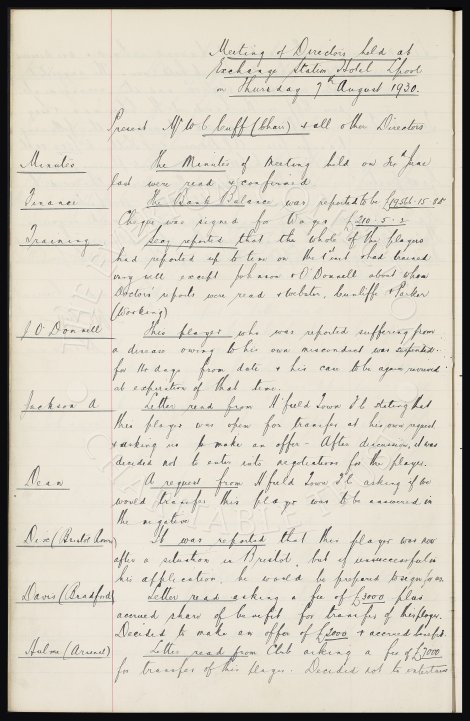 Meeting of Directors held at
Exchange Station Hotel Lpool
on Thursday 7th August 1930.
Present Mr W C Cuff (Chair) & all other Directors
Minutes The Minutes of Meeting held on 30th June
last were read & confirmed
Finance The Bank Balance was reported to be
Cheque was signed for Wages £210. 5. 2
Training Secy reported that the whole of the players
had reported up to time on the 1st inst & had trained
very well except Johnson & O'Donnell about whom
Doctors' reports were read & Webster, Cunliffe & Parker
(Working)
J O'Donnell This player who was reported suffering from
a disease owing to his own misconduct was suspended
for 14 days from date & his case to be again reviewed
at expiration of that time.
Jackson A. Letter read from H'field Town F.C. stating that
this player was open for transfer at his own request
& asking us to make an offer - After discussion, it was
decided not to enter into negotiations for the player.
Dean A request from H'field Town F.C. asking if we
would transfer this player was to be answered in
the negative.
Dix (Bristol Rovers) It was reported that this player was now
after a situation in Bristol, but if unsuccessful in
his application, he would be prepared to sign for us
Davis (Bradford) Letter read asking a fee of £3000 plus
accrued share of benefit for transfer of this player.
Decided to make an offer of £2000 & accrued benefit
Hulme (Arsenal) Letter read from Club asking a fee of £7000
for transfer of this player. Decided not to entertain